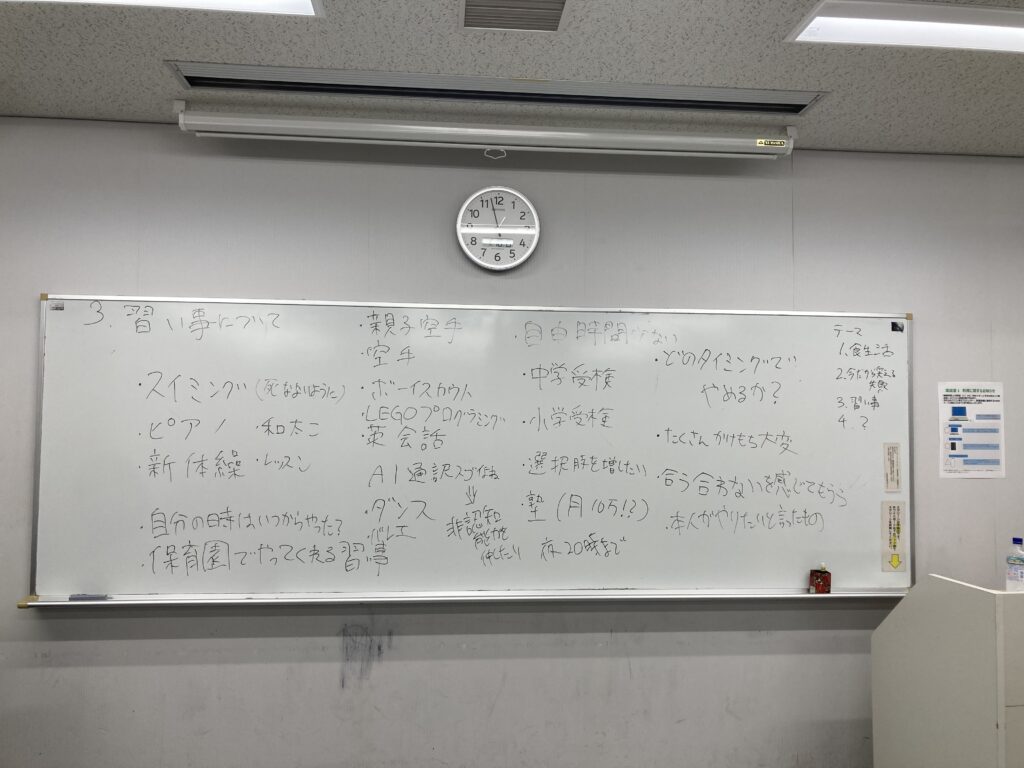 3. 習い事について
・スイミング (死なないように)
・ピアノ ・和太こ
・新体操 ・レッスン
・自分の時はいつからやった?
・保育園でやってくれる習い事
・親子空手
・空手
・ボーイスカウト
・LEGOプログラミング
・英会話
AI通訳スゴイよね
⇓
非認知
能力を
伸ばしたい
・ダンス
・バレエ
・自由時間少ない
・中学受検
・小学受検
・選択肢を増したい
・塾 (月10万!?)
夜20時まで
・どのタイミングで
やめるか?
・たくさんかけもち大変
・合う合わないを感じてもらう
・本人がやりたいと言ったもの
テーマ
1. 食生活
2. 今だから笑える
失敗
3. 習い事
4. ?
11 12 1 2 4 5 6 7 8 10